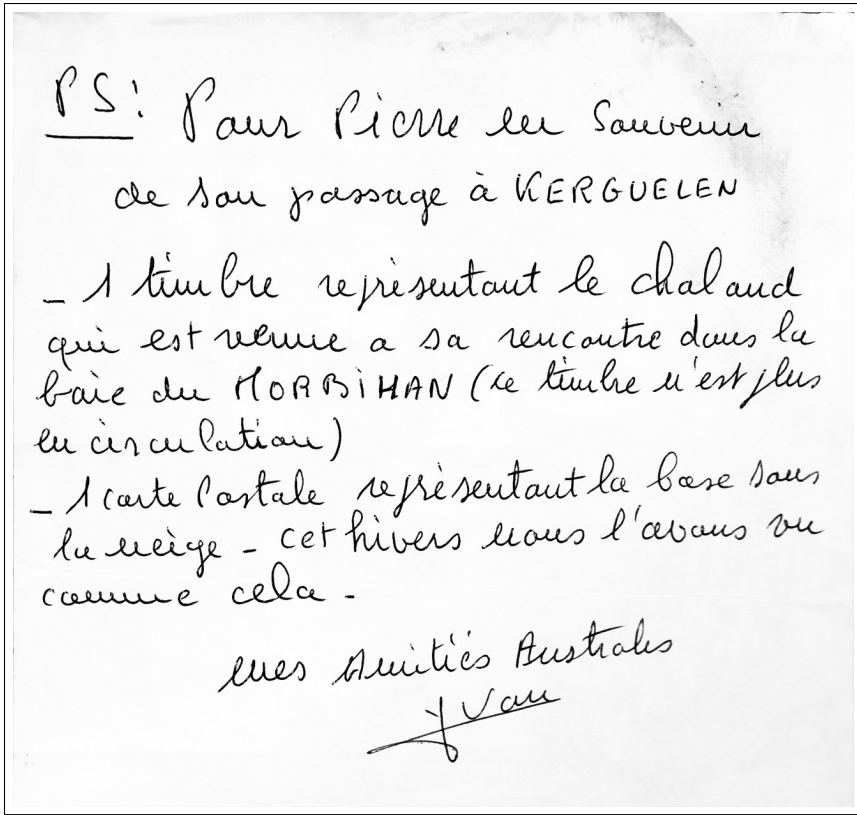 PS: Pour Pierre en Souvenir
de son passage à KERGUELEN
- 1 timbre représentant le chaland
qui est venue a sa rencontre dans la
baie du MORBIHAN (ce timbre n'est plus
en circulation)
- 1 carte Postale représentant la base sous
la neige - cet hivers nous l'avons vu
comme cela -
mes Amitiés Australes
Yvan